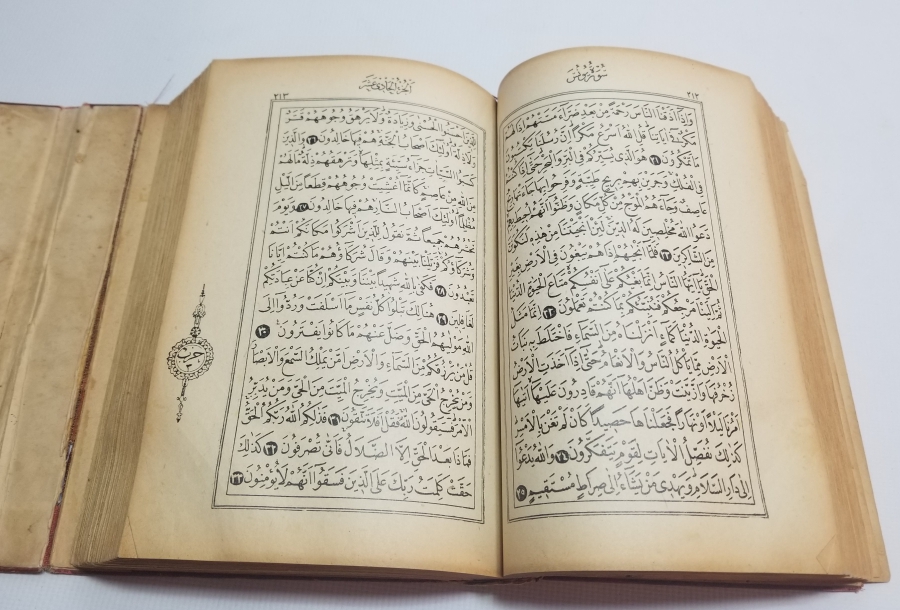 ٢١٢
سُورَةُ يُونُسَ
وَاِذَٓا اَذَقْنَا النَّاسَ رَحْمَةً مِنْ بَعْدِ ضَرَّٓاءَ مَسَّتْهُمْ اِذَا لَهُمْ
مَكْرٌ فِٓى اٰيَاتِنَا قُلِ اللّٰهُ اَسْرَعُ مَكْرًا اِنَّ رُسُلَنَا يَكْتُبُونَ
مَا تَمْكُرُونَ ٢١ هُوَ الَّذِى يُسَيِّرُكُمْ فِى الْبَرِّ وَالْبَحْرِ حَتّٰٓى اِذَا كُنْتُمْ
فِى الْفُلْكِ وَجَرَيْنَ بِهِمْ بِرِيحٍ طَيِّبَةٍ وَفَرِحُوا بِهَا جَٓاءَتْهَا رِيحٌ
عَاصِفٌ وَجَٓاءَهُمُ الْمَوْجُ مِنْ كُلِّ مَكَانٍ وَظَنُّٓوا اَنَّهُمْ اُحِيطَ بِهِمْ
دَعَوُا اللّٰهَ مُخْلِصِينَ لَهُ الدِّينَ لَئِنْ اَنْجَيْتَنَا مِنْ هٰذِهِ لَنَكُونَنَّ
مِنَ الشَّاكِرِينَ ٢٢ فَلَمَّٓا اَنْجٰيهُمْ اِذَا هُمْ يَبْغُونَ فِى الْاَرْضِ بِغَيْرِ
الْحَقِّ يَٓا اَيُّهَا النَّاسُ اِنَّمَا بَغْيُكُمْ عَلٰٓى اَنْفُسِكُمْ مَتَاعَ الْحَيٰوةِ الدُّنْيَا
ثُمَّ اِلَيْنَا مَرْجِعُكُمْ فَنُنَبِّئُكُمْ بِمَا كُنْتُمْ تَعْمَلُونَ ٢٣ اِنَّمَا مَثَلُ
الْحَيٰوةِ الدُّنْيَا كَمَٓاءٍ اَنْزَلْنَاهُ مِنَ السَّمَٓاءِ فَاخْتَلَطَ بِهِ نَبَاتُ
الْاَرْضِ مِمَّا يَاْكُلُ النَّاسُ وَالْاَنْعَامُ حَتّٰٓى اِذَٓا اَخَذَتِ الْاَرْضُ
زُخْرُفَهَا وَازَّيَّنَتْ وَظَنَّ اَهْلُهَٓا اَنَّهُمْ قَادِرُونَ عَلَيْهَٓا اَتٰيهَٓا
اَمْرُنَا لَيْلًا اَوْ نَهَارًا فَجَعَلْنَاهَا حَصِيدًا كَاَنْ لَمْ تَغْنَ بِالْاَمْسِ
كَذٰلِكَ نُفَصِّلُ الْاٰيَاتِ لِقَوْمٍ يَتَفَكَّرُونَ ٢٤ وَاللّٰهُ يَدْعُٓوا
اِلٰى دَارِ السَّلَامِ وَيَهْدِى مَنْ يَشَٓاءُ اِلٰى صِرَاطٍ مُسْتَقِيمٍ ٢٥
اَلْجُزْءُ الْحَادِى عَشَرَ
٢١٣
لِلَّذِينَ اَحْسَنُوا الْحُسْنٰى وَزِيَادَةٌ وَلَا يَرْهَقُ وُجُوهَهُمْ قَتَرٌ
وَلَا ذِلَّةٌ اُولٰٓئِكَ اَصْحَابُ الْجَنَّةِ هُمْ فِيهَا خَالِدُونَ ٢٦ وَالَّذِينَ
كَسَبُوا السَّيِّـَٔاتِ جَزَٓاءُ سَيِّئَةٍ بِمِثْلِهَا وَتَرْهَقُهُمْ ذِلَّةٌ مَا لَهُمْ
مِنَ اللّٰهِ مِنْ عَاصِمٍ كَاَنَّمَٓا اُغْشِيَتْ وُجُوهُهُمْ قِطَعًا مِنَ الَّيْلِ
مُظْلِمًا اُولٰٓئِكَ اَصْحَابُ النَّارِ هُمْ فِيهَا خَالِدُونَ ٢٧ وَيَوْمَ
نَحْشُرُهُمْ جَمِيعًا ثُمَّ نَقُولُ لِلَّذِينَ اَشْرَكُوا مَكَانَكُمْ اَنْتُمْ
وَشُرَكَٓاؤُكُمْ فَزَيَّلْنَا بَيْنَهُمْ وَقَالَ شُرَكَٓاؤُهُمْ مَا كُنْتُمْ اِيَّانَا
تَعْبُدُونَ ٢٨ فَكَفٰى بِاللّٰهِ شَهِيدًا بَيْنَنَا وَبَيْنَكُمْ اِنْ كُنَّا عَنْ عِبَادَتِكُمْ
لَغَافِلِينَ ٢٩ هُنَالِكَ تَبْلُوا كُلُّ نَفْسٍ مَٓا اَسْلَفَتْ وَرُدُّٓوا اِلَى
اللّٰهِ مَوْلٰيهُمُ الْحَقِّ وَضَلَّ عَنْهُمْ مَا كَانُوا يَفْتَرُونَ ٣٠
قُلْ مَنْ يَرْزُقُكُمْ مِنَ السَّمَٓاءِ وَالْاَرْضِ اَمَّنْ يَمْلِكُ السَّمْعَ وَالْاَبْصَارَ
وَمَنْ يُخْرِجُ الْحَىَّ مِنَ الْمَيِّتِ وَيُخْرِجُ الْمَيِّتَ مِنَ الْحَىِّ وَمَنْ يُدَبِّرُ
الْاَمْرَ فَسَيَقُولُونَ اللّٰهُ فَقُلْ اَفَلَا تَتَّقُونَ ٣١ فَذٰلِكُمُ اللّٰهُ رَبُّكُمُ الْحَقُّ
فَمَاذَا بَعْدَ الْحَقِّ اِلَّا الضَّلَالُ فَاَنّٰى تُصْرَفُونَ ٣٢ كَذٰلِكَ
حَقَّتْ كَلِمَتُ رَبِّكَ عَلَى الَّذِينَ فَسَقُٓوا اَنَّهُمْ لَا يُؤْمِنُونَ ٣٣
حزب
٣